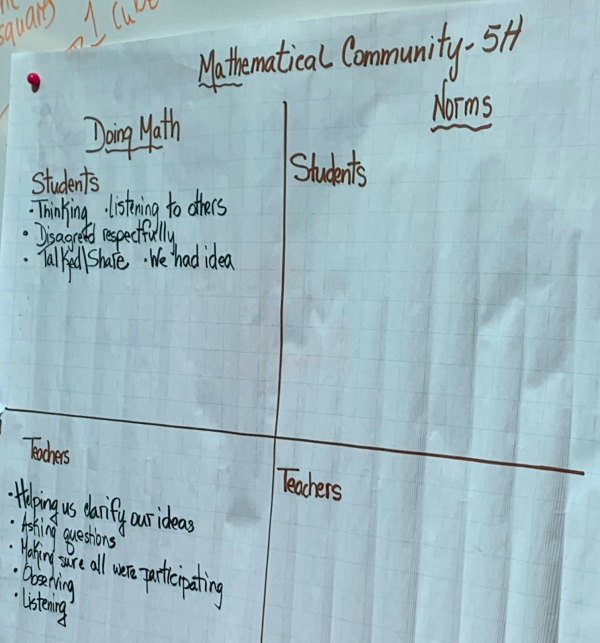 square
1 cube
Mathematical Community - 5H
Doing Math
Norms
Students
· Thinking · Listening to others
· Disagreed respectfully
· Talked/Share · We had idea
Students
Teachers
· Helping us clarify our ideas
· Asking questions
· Making sure all were participating
· Observing
· Listening
Teachers